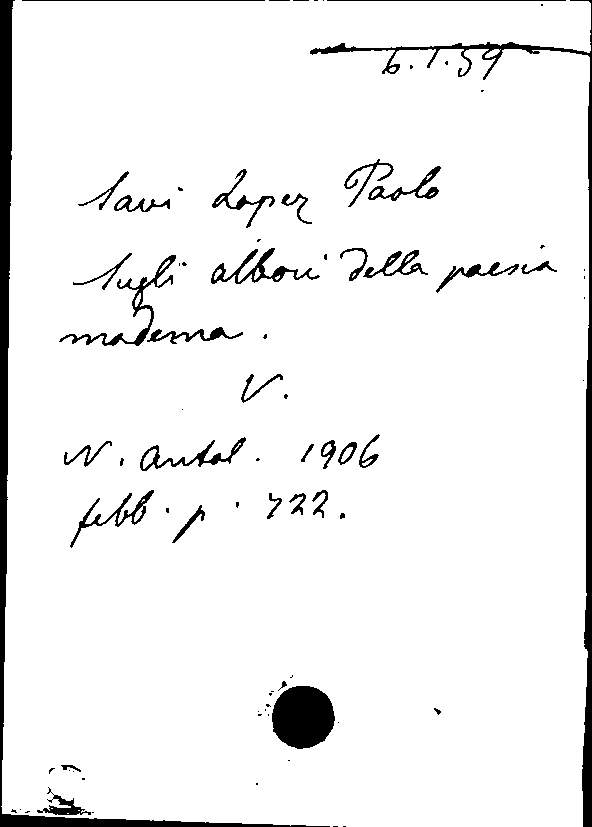 6.I.59
Savi Lopez Paolo
Sugli albori della poesia
moderna.
V.
N. Antol. 1906
febb. p. 722.